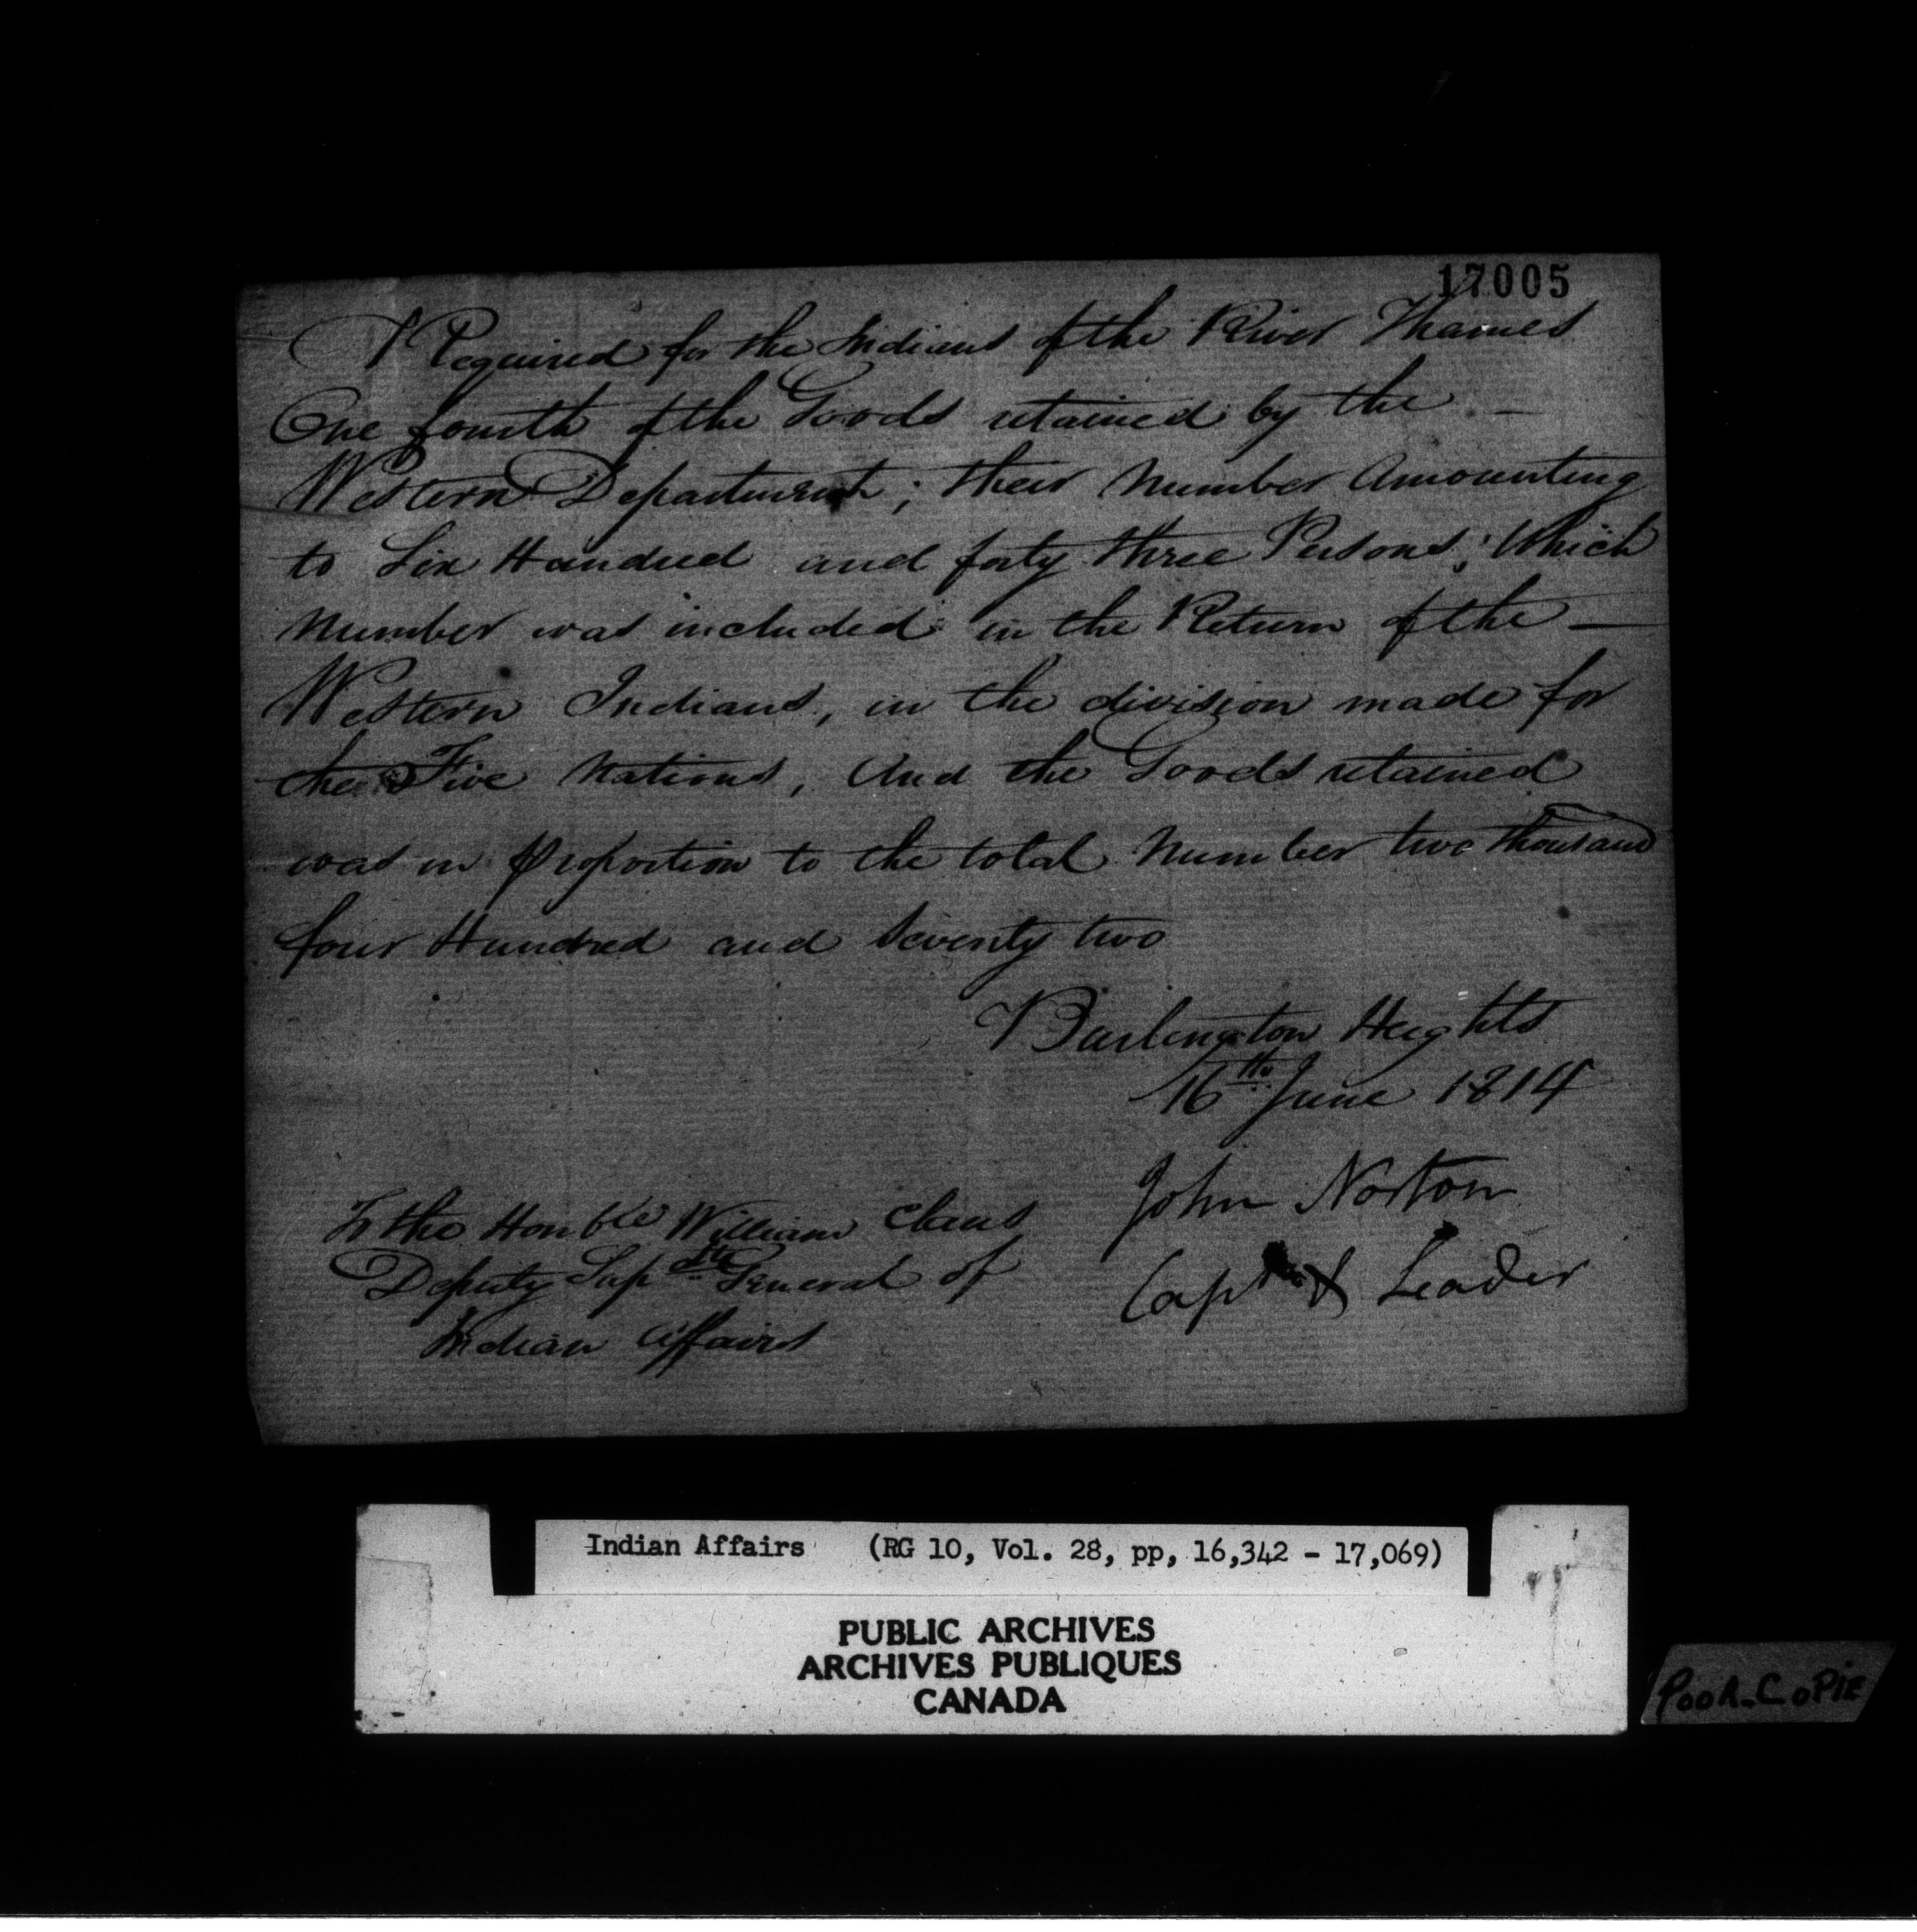 17005
Required for the Indians of the River Thames
One fourth of the Goods retained by the —
Western Department; their Number Amounting
to Six Hundred and forty three Persons; Which
Number was included in the Return of the —
Western Indians, in the division made for
the Five Nations, And the Goods retained
was in proportion to the total Number two thousand
four Hundred and Seventy two
Burlington Heights
16th June 1814
John Norton
Capt & Leader
To the Honble William Claus
Deputy Supdt General of
Indian Affairs
Indian Affairs (RG 10, Vol. 28, pp, 16,342 - 17,069)
PUBLIC ARCHIVES
ARCHIVES PUBLIQUES
CANADA
POOR-COPIE